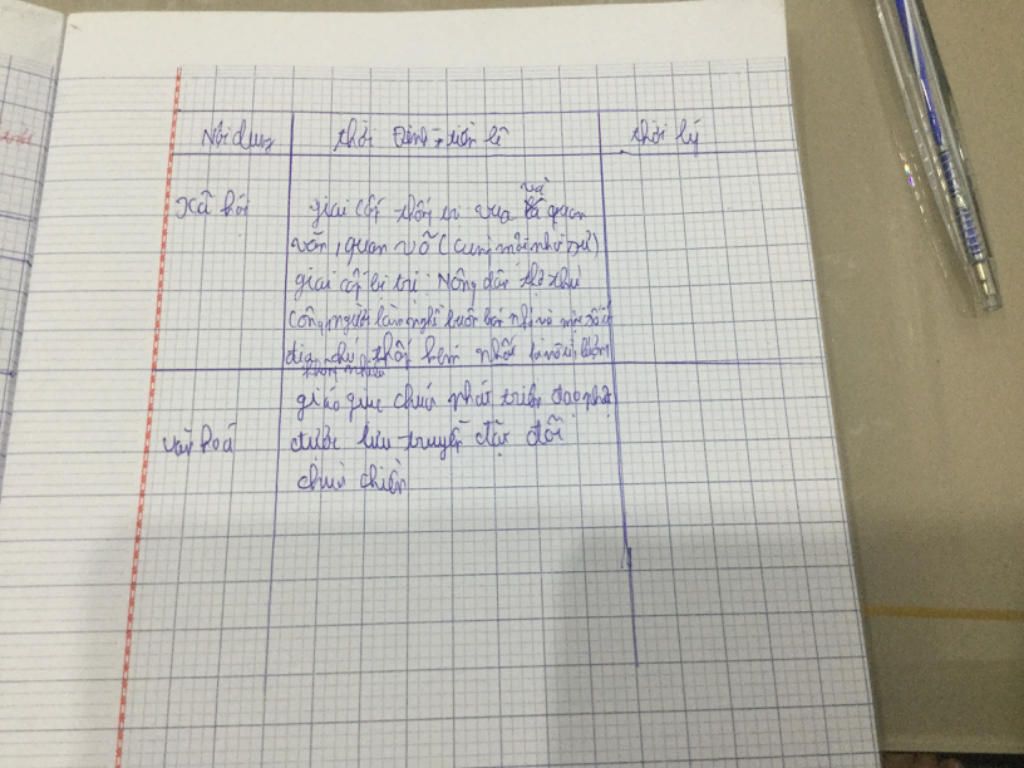 Nội dung thời Đinh - tiền lê thời lý
và
Xã hội giai cấp thống trị vua quan
văn, quan võ (cùng một nhà sư)
giai cấp bị trị: Nông dân thợ thủ
công, người làm nghề buôn bán nhỏ và một số ít
địa chủ thấp kém nhất là nô tì
giáo dục chưa phát triển đạo phật
văn hoá được lưu truyền
chùa chiền